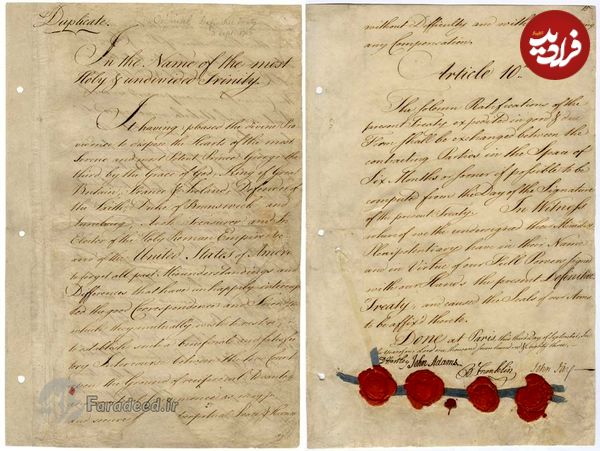 Duplicate.
In the Name of the most
Holy & undivided Trinity.
It having pleased the divine Pro
vidence to dispose the Hearts of the most
Serene and most Potent Prince George the
third by the Grace of God, King of Great
Britain, France & Ireland, Defender of
the Faith, Duke of Brunswick and
Lunebourg, Arch Treasurer, and
Elector of the Holy Roman Empire &ca
and of the United States of America
to forget all past Misunderstandings and
Differences that have unhappily interrup
ted the good Correspondence and Friendship
which they mutually wish to restore;
to establish such a beneficial and satisfac
tory Intercourse between the two Countries
upon the Ground of reciprocal Advantages
and
and secure to both perpetual Peace & Harmony
Faradeed.ir
without Difficulty and without
any Compensation.
Article 10th
The solemn Ratifications of the
present Treaty expedited in good & due
Form shall be exchanged between the
contracting Parties in the Space of
Six Months or sooner if possible to be
computed from the Day of the Signature
of the present Treaty. In Witness
whereof we the undersigned their Ministers
Plenipotentiary have in their Name
and in Virtue of our Full Powers signed
with our Hands the present Definitive
Treaty, and caused the Seals of our Arms
to be affix'd thereto.
Done at Paris, this third Day of September, In
the Year of our Lord one thousand seven hundred & eighty three.
D Hartley John Adams B Franklin John Jay
فرادید